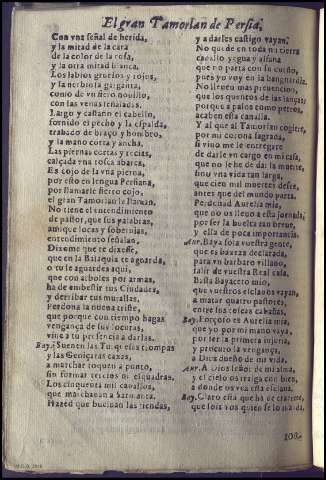 El gran Tamorlan de Persia,
Con vna señal de herida,
y la mitad de la cara
de la color de la rosa,
y la otra mitad blanca.
Los labios gruessos y rojos,
y la nerbiosa garganta,
como de vn fiero nouillo,
con las venas señaladas.
Largo y castaño el cabello,
fornido el pecho y la espalda,
trabado de braço y hombro,
y la mano corta y ancha.
Las piernas cortas y recias,
calçada vna tosca abarca.
Es cojo de la vna pierna,
por esto en lengua Persiana,
por llamarle fiero cojo,
el gran Tamorlan le llaman.
No tiene el entendimiento
de pastor, que sus palabras,
aunque locas y soberuias,
entendimiento señalan.
Dixome que te dixesse,
que en la Balaquia te aguarda,
o tu le aguardes aqui,
que con arboles por armas,
ha de embestir tus Ciudades,
y derribar tus murallas.
Perdona la nueua triste,
que porque con tiempo hagas
vengança de sus locuras,
vine a tu presencia a darlas.
Bay. Suenen las Turquescas trompas
y las Geniçaras caxas,
a marchar toquen a punto,
sin formar tercios ni esquadras.
Los cinquenta mil cauallos,
que marchauan a Sarmanca.
Hazed que bueluan las riendas,
y a darles castigo vayan.
No quede en toda mi tierra
cauallo yegua y alfana
que no parta con su dueño,
pues yo voy en la banguardia.
No lleueis mas preuencion,
que los quentos de las lanças,
porque a palos como perros,
acaben esta canalla.
Y al que al Tamorlan cogiere,
por mi corona sagrada,
si viuo me le entregare
de darle vn cargo en mi casa,
que no le he de dar la muerte,
sino vna vida tan larga,
que cien mil muertes dessee,
antes que del mundo parta.
Perdonad Aurelia mia,
que no os lleuo a esta jornada,
por ser la buelta tan breue,
y ella de poca importancia.
Aur. Baya sola vuestra gente,
que es baxeza declarada,
para vn barbaro villano,
salir de vuestra Real casa.
Basta Bayaceto mio,
que vuestros esclauos vayan,
a matar quatro pastores,
entre sus toscas cabañas.
Bay. Forçoso es Aurelia mia,
que yo por mi mano vaya,
por ser la primera injuria,
y procuro la vengança,
a Dios dueño de mi vida.
Aur. A Dios señor de mi alma,
y el cielo os traiga con bien,
a donde os vea esta esclaua.
Bay. Claro està que ha de traerme,
que